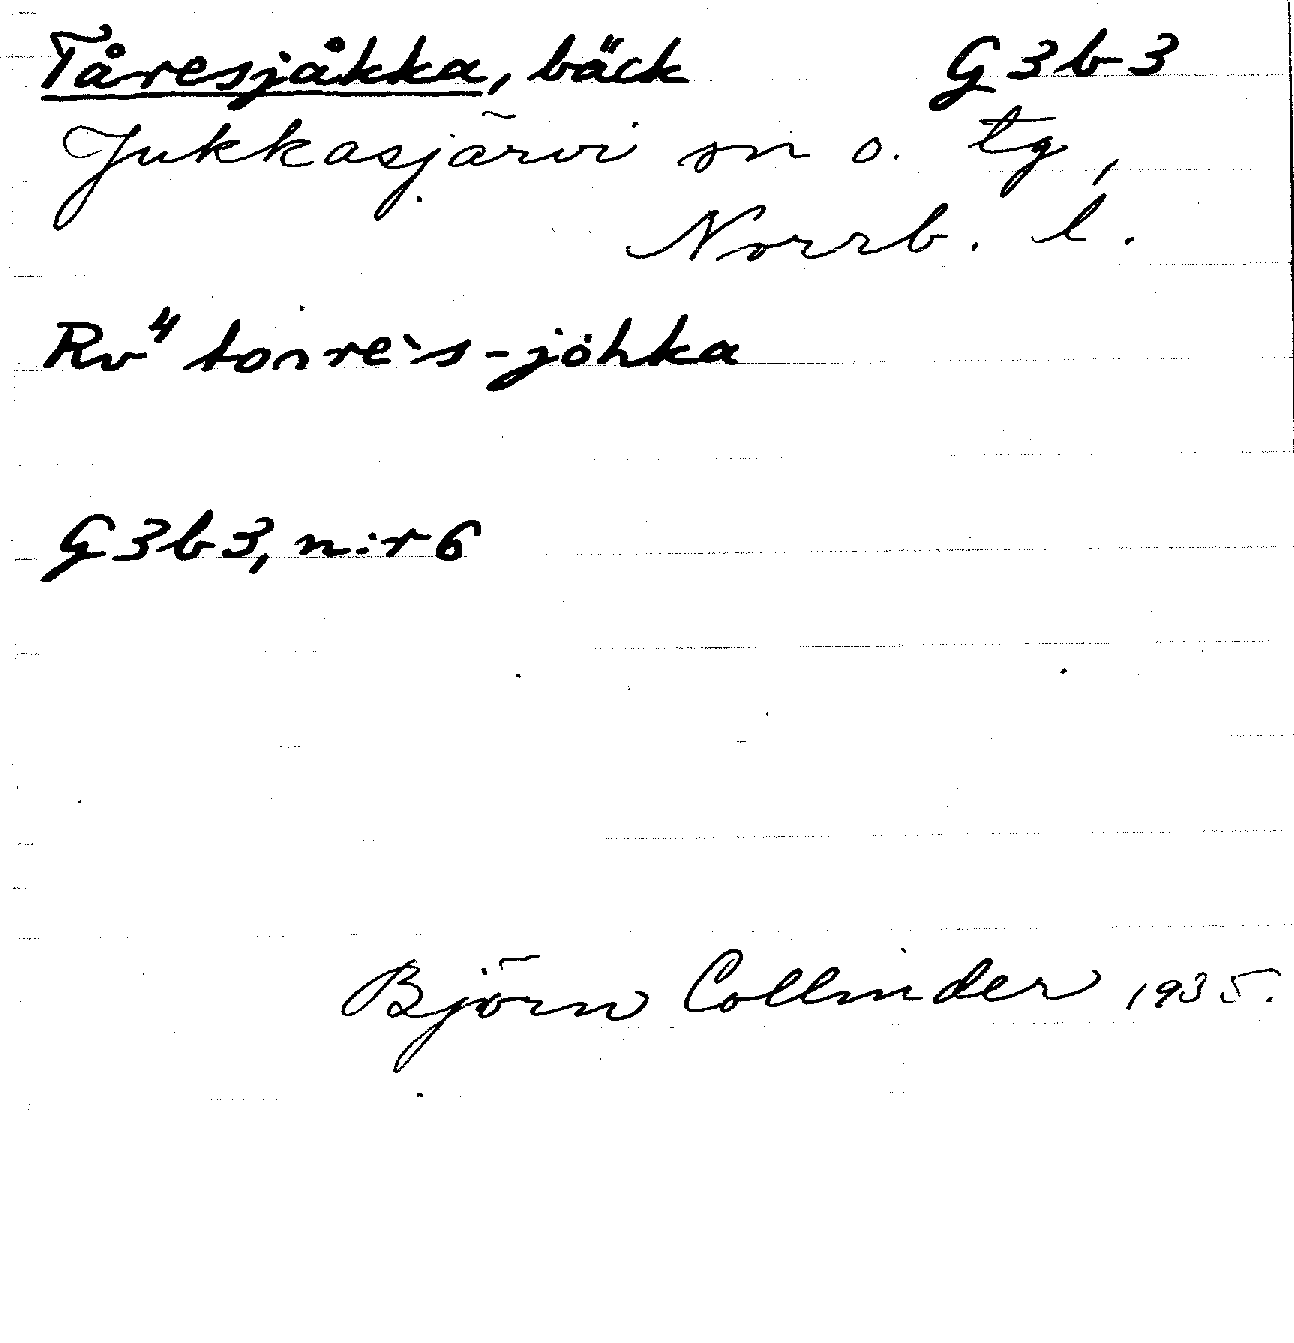 Tåresjåkka, bäck G3b3
Jukkasjärvi sn o. tg,
Norrb. l.
Rv" torres-jòhka
G3b3, n:r 6
Björn Collinder 1935.